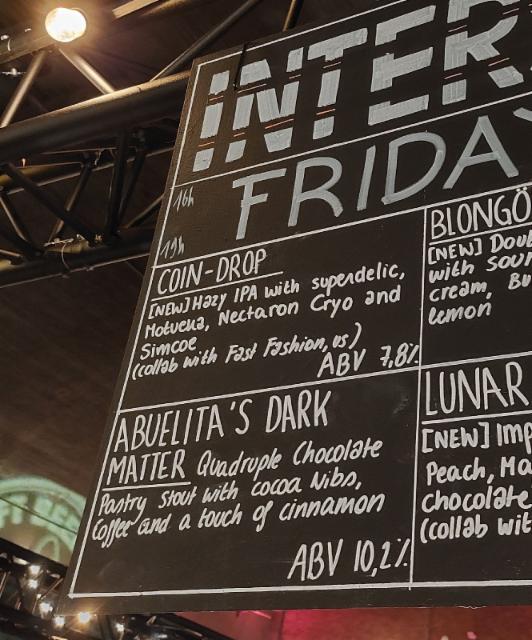 INTER
FRIDAY
16h
19h
COIN-DROP
[NEW] Hazy IPA with superdelic,
Motueka, Nectaron Cryo and
Simcoe
(collab with Fast Fashion, us)
ABV 7,8%
ABUELITA'S DARK
MATTER Quadruple Chocolate
Pastry Stout with cocoa Nibs,
Coffee and a touch of cinnamon
ABV 10,2%
BLONGÖ
[NEW] Dou
with sour
cream, Bu
Lemon
LUNAR
[NEW] Imp
Peach, Mo
chocolate
(collab wit